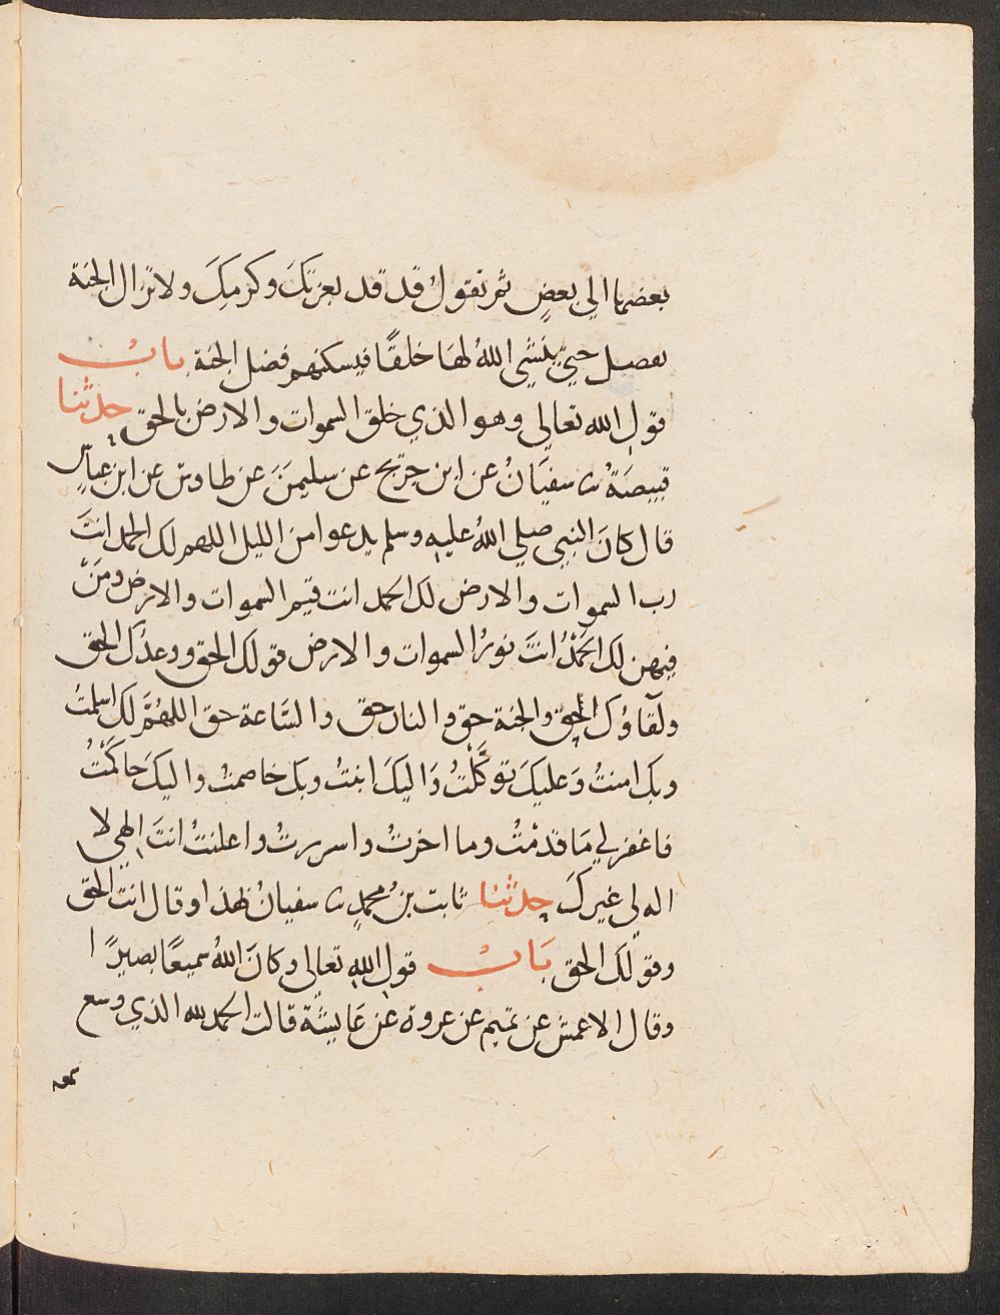 بعضها الي بعضٍ ثم تقولُ قد قد بعزتكَ وكرمكَ ولا تزال الجنة
تفضل حتي ينشي اللهُ لها خلقًا فيسكنهم فضل الجنة بابُ
قول الله تعالي وهو الذي خلق السموات والارض بالحق حدثنا
قبيصَةُ ثنا سفيَانُ عن ابن جريج عن سليمنَ عن طاوس عن ابن عباسٍ
قال كانَ النبي صلي اللهُ عليه وسلم يدعوا من الليل اللهم لك الحمد انتَ
رب السموات والارض لك الحمد انت قيم السموات والارض ومَنْ
فيهن لك الحَمْدُ انتَ نورُ السموات والارض قولك الحق ووعدُك الحق
ولقاؤك الحق والجنة حق والنار حق والسَّاعة حق اللهُمَّ لك اسلمتُ
وبك امنتُ وَعليكَ توكَّلْتُ وَاليكَ انبتُ وبك خاصمتُ واليكَ حاكَمْتُ
فاغفر لي مَا قدمْتُ وما اخرتُ واسررتُ واعلنتُ انتَ الهي لا
اله لي غيركَ حدثنا ثابت بنُ محمدٍ ثنا سفيانُ بهذا وقال انت الحق
وقولك الحق بَابُ قول اللهِ تعالي وكانَ اللهُ سميعًا بصيرًا
وقال الاعمش عن تميم عن عروة عن عَايشَة قالت الحمد لله الذي وسع
سمعه